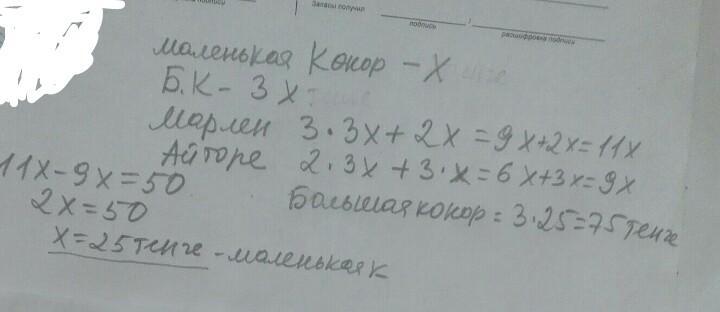 подпись
Запасы получил
подпись
/
расшифровка подпись
маленькая Конор - х
Б.К - 3х
Марлен 3·3х + 2х = 9х+2х=11х
Айторе 2·3х + 3·х = 6х+3х=9х
11х-9х=50
2х=50
Большая конор = 3·25=75 тенге
х=25 тенге - маленькая к